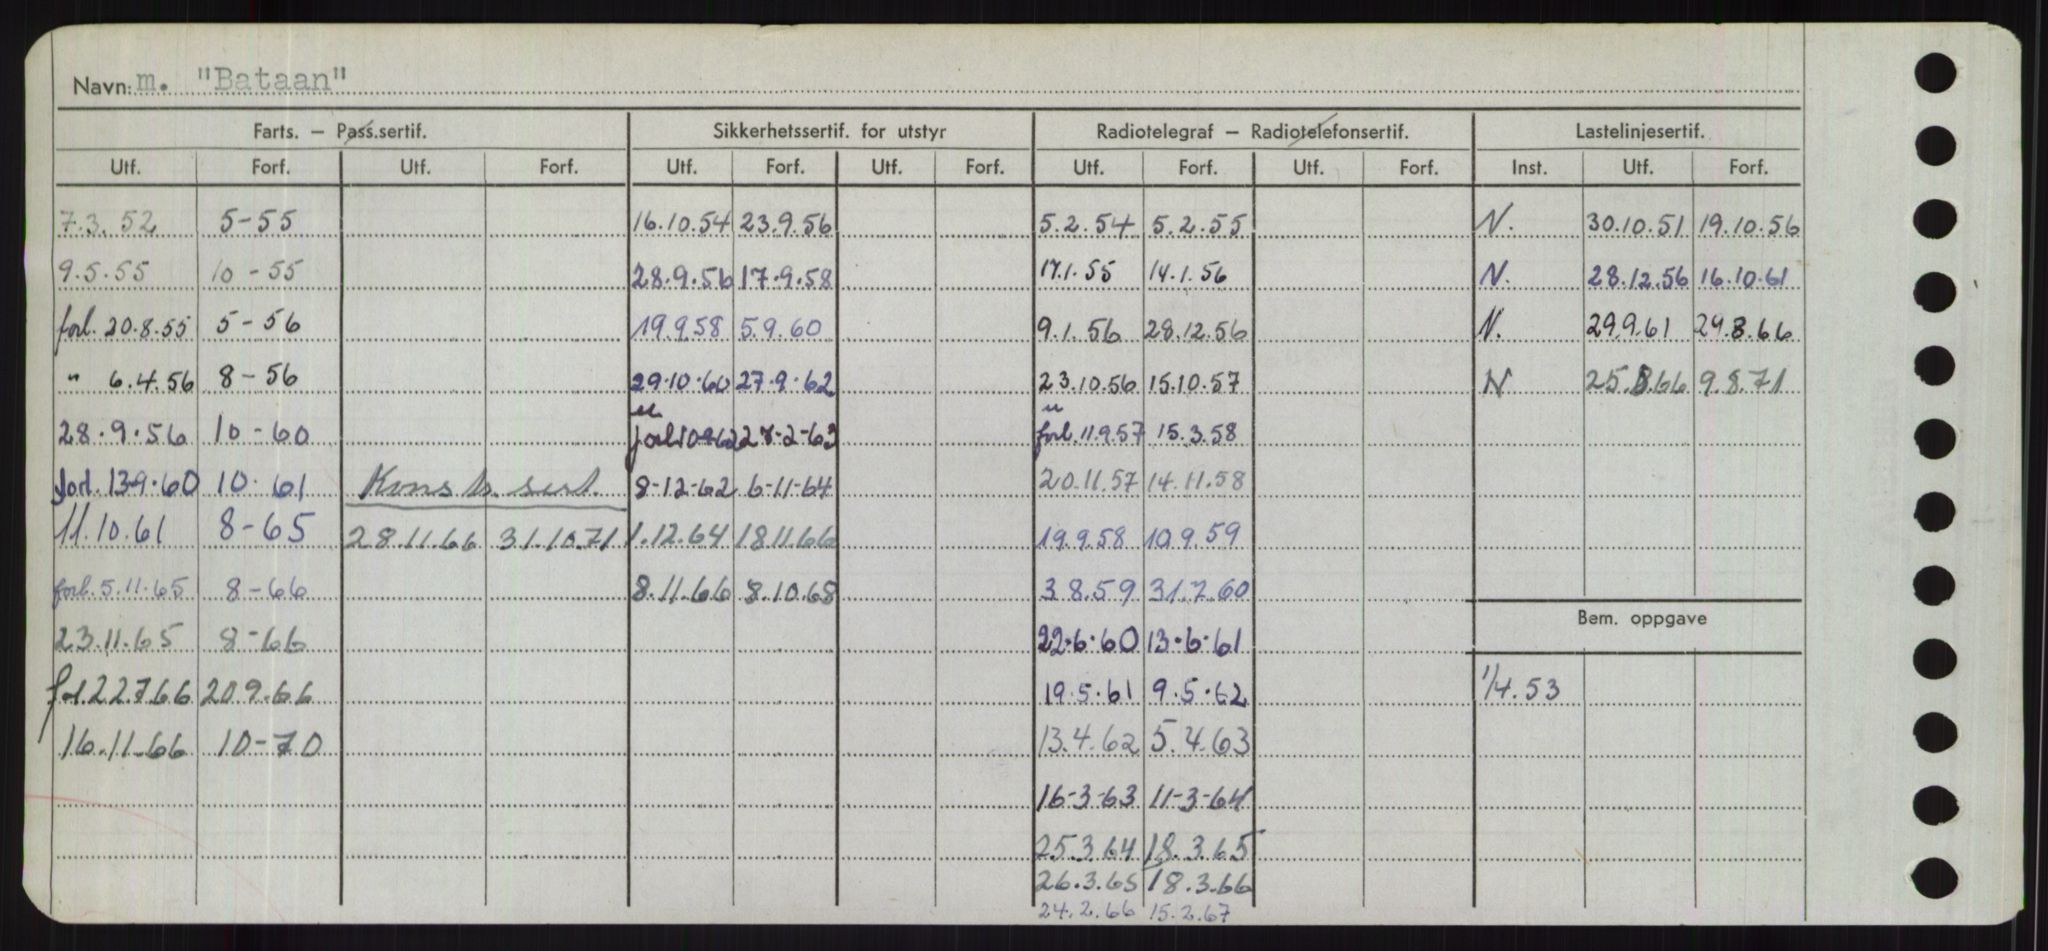 Navn: m. "Bataan"
Farts. – Pass.sertif. Sikkerhetssertif. for utstyr Radiotelegraf – Radiotelefonsertif. Lastelinjesertif.
Utf. Forf. Utf. Forf. Utf. Forf. Utf. Forf. Utf. Forf. Utf. Forf. Inst. Utf. Forf.
7.3.52 5-55 16.10.54 23.9.56 5.2.54 5.2.55 N. 30.10.51 19.10.56
9.5.55 10-55 28.9.56 17.9.58 17.1.55 14.1.56 N. 28.12.56 16.10.61
forl. 20.8.55 5-56 19.9.58 5.9.60 9.1.56 28.12.56 N. 29.9.61 29.8.66
" 6.4.56 8-56 29.10.60 27.9.62 23.10.56 15.10.57 N 25.8.66 9.8.71
28.9.56 10-60 forl. 27-2-63 forl. 11.9.57 15.3.58
forl. 13.9.60 10.61 Konstr. sert. 8-12-62 6-11-64 20.11.57 14.11.58
11.10.61 8-65 28.11.66 31.10.71 1.12.64 18.11.66 19.9.58 10.9.59
forl. 5.11.65 8-66 8.11.66 8.10.68 3.8.59 31.7.60
Bem. oppgave
23.11.65 8-66 22.6.60 13.6.61
forl. 22.7.66 20.9.66 19.5.61 9.5.62 1/4.53
16.11.66 10-70 13.4.62 5.4.63
16-3-63 11-3-64
25.3.64 18.3.65
26.3.65 18.3.66
24.2.66 15.2.67